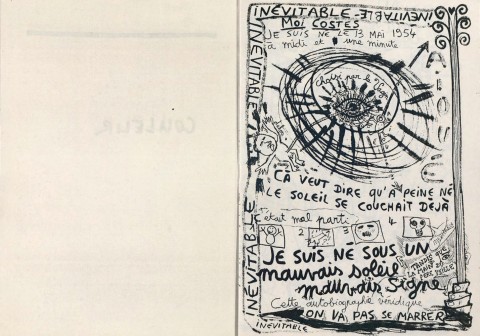 COULEUR
INEVITABLE INEVITABLE INEVITABLE
MOI COSTES
JE SUIS NÉ LE 13 MAI 1954
à midi et une minute
INEVITABLE
INEVITABLE
INEVITABLE
ÇÀ VEUT DIRE QU'À PEINE NÉ
LE SOLEIL SE COUCHAIT DÉJÀ
était mal parti
2 3 4
JE SUIS NÉ SOUS UN
mauvais soleil
mauvais signe
Cette autobiographie véridique
ON VA PAS SE MARRER
INEVITABLE